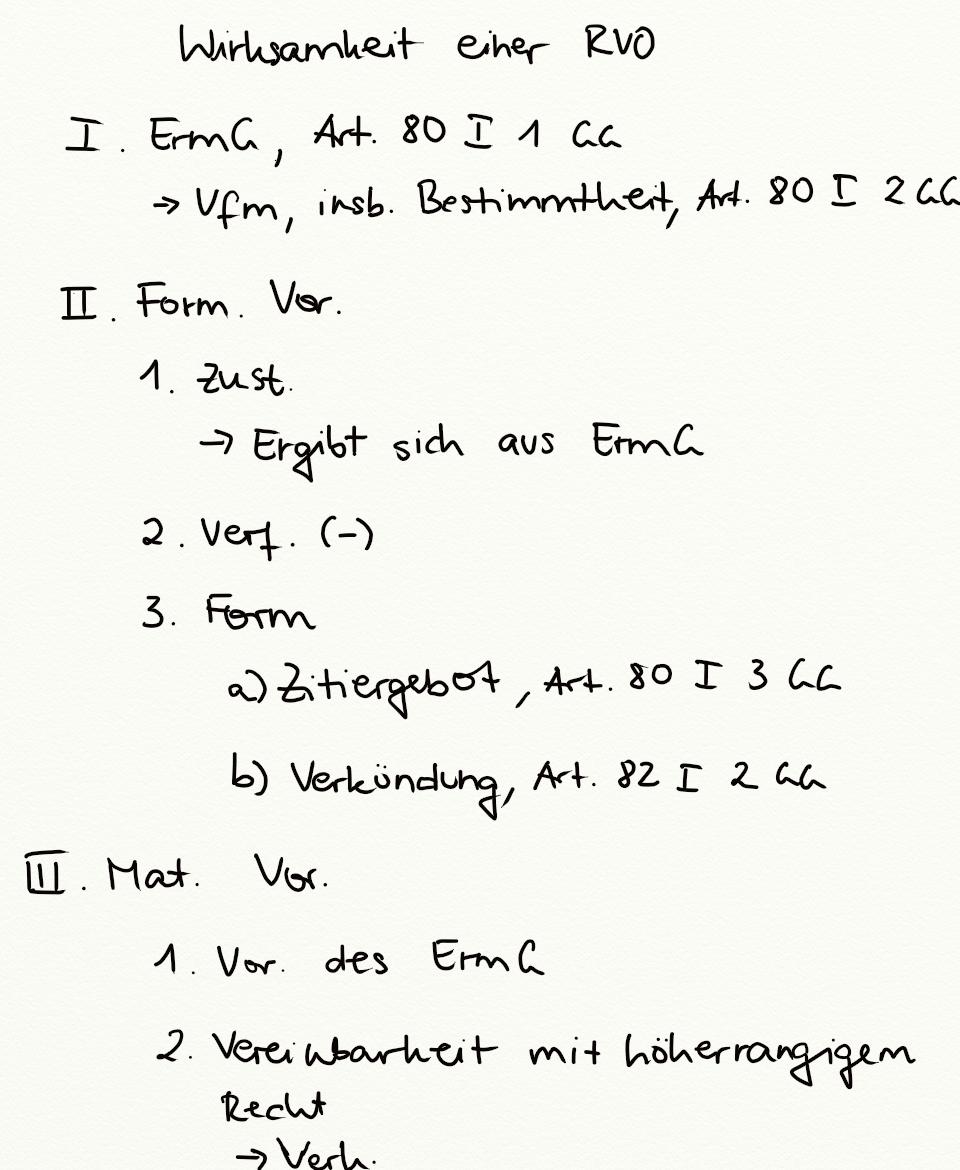 Wirksamkeit einer RVO
I. ErmG, Art. 80 I 1 GG
→ Vfm, insb. Bestimmtheit, Art. 80 I 2 GG
II. Form. Vor.
1. Zust.
→ Ergibt sich aus ErmG
2. Verf. (-)
3. Form
a) Zitiergebot, Art. 80 I 3 GG
b) Verkündung, Art. 82 I 2 GG
III. Mat. Vor.
1. Vor. des ErmG
2. Vereinbarkeit mit höherrangigem
Recht
→ Verh.